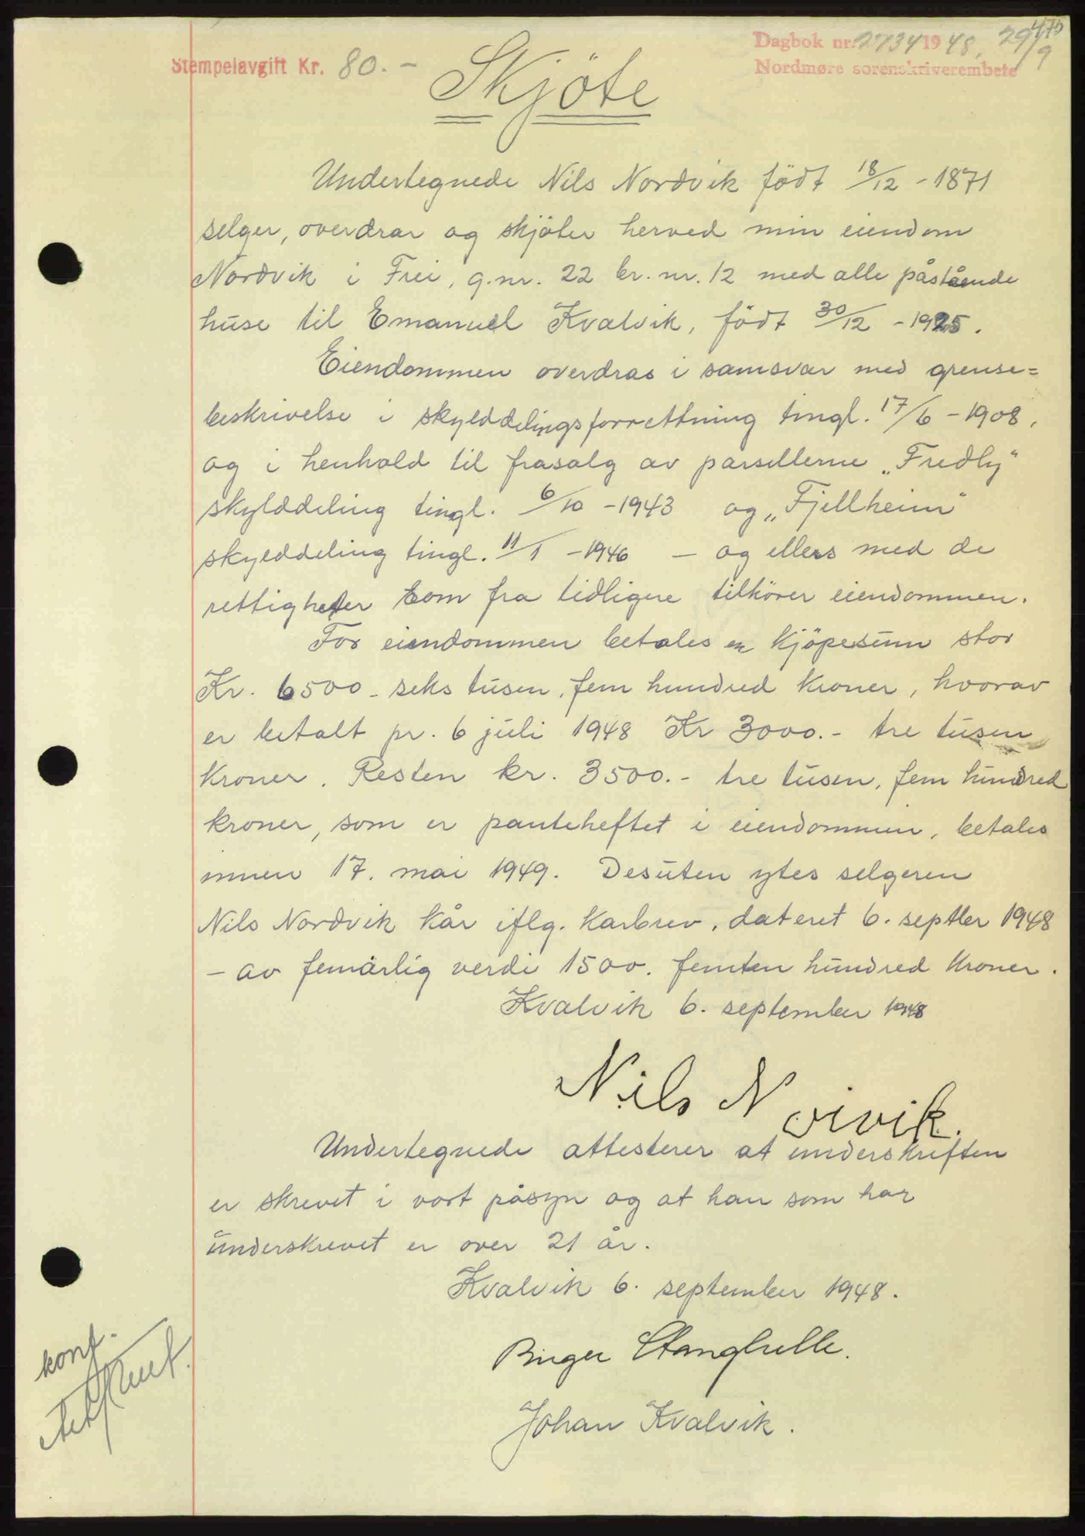 475
Dagbok nr. 2734 1948, 29/9
Stempelavgift Kr. 80.-
Nordmøre sorenskriverembete
Skjöte
Undertegnede Nils Nordvik födt 18/12 - 1871
selger, overdrar og skjöter herved min eiendom
Nordvik i Frei, g.nr. 22 br. nr. 12 med alle påstående
huse til Emanuel Kvalvik, födt 30/12 - 1925.
Eiendommen overdras i samsvar med grense=
beskrivelse i skylddelingsforrettning tingl. 17/6 - 1908,
og i henhold til frasalg av parsellerne „Fredly“
skylddeling tingl. 6/10 - 1943 og „Fjellheim“
skylddeling tingl. 11/1 - 1946 - og ellers med de
rettigheter som fra tidligere tilhörer eiendommen.
For eiendommen betales en kjöpesum stor
Kr. 6500 - seks tusen, fem hundred kroner, hvorav
er betalt pr. 6 juli 1948 Kr 3000.- tre tusen
kroner. Resten kr. 3500.- tre tusen, fem hundred
kroner, som er panteheftet i eiendommen, betales
innen 17. mai 1949. Desuten ytes selgeren
Nils Nordvik kår iflg. karbrev, dateret 6. septber 1948
- av femårlig verdi 1500. femten hundred kroner.
Kvalvik 6. september 1948
Nils Norvik.
Undertegnede attesterer at underskriften
er skrevet i vort påsyn og at han som har
underskrevet er over 21 år.
Kvalvik 6. september 1948.
Birger Stanghelle.
Johan Kvalvik.
konf.